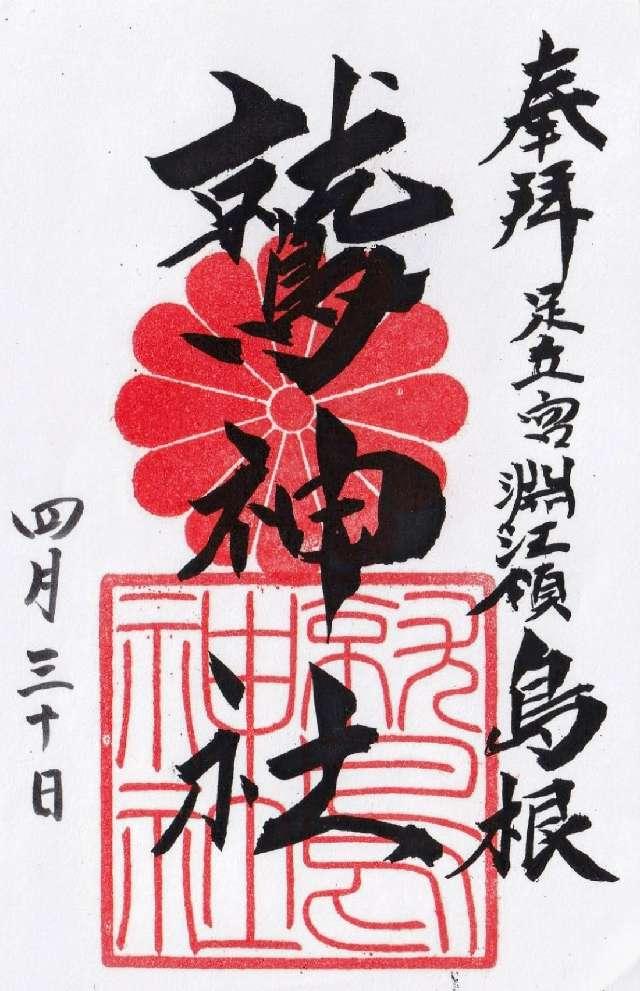 奉拝 足立宮 淵江領 島根
鷲神社
鷲神社
四月三十日